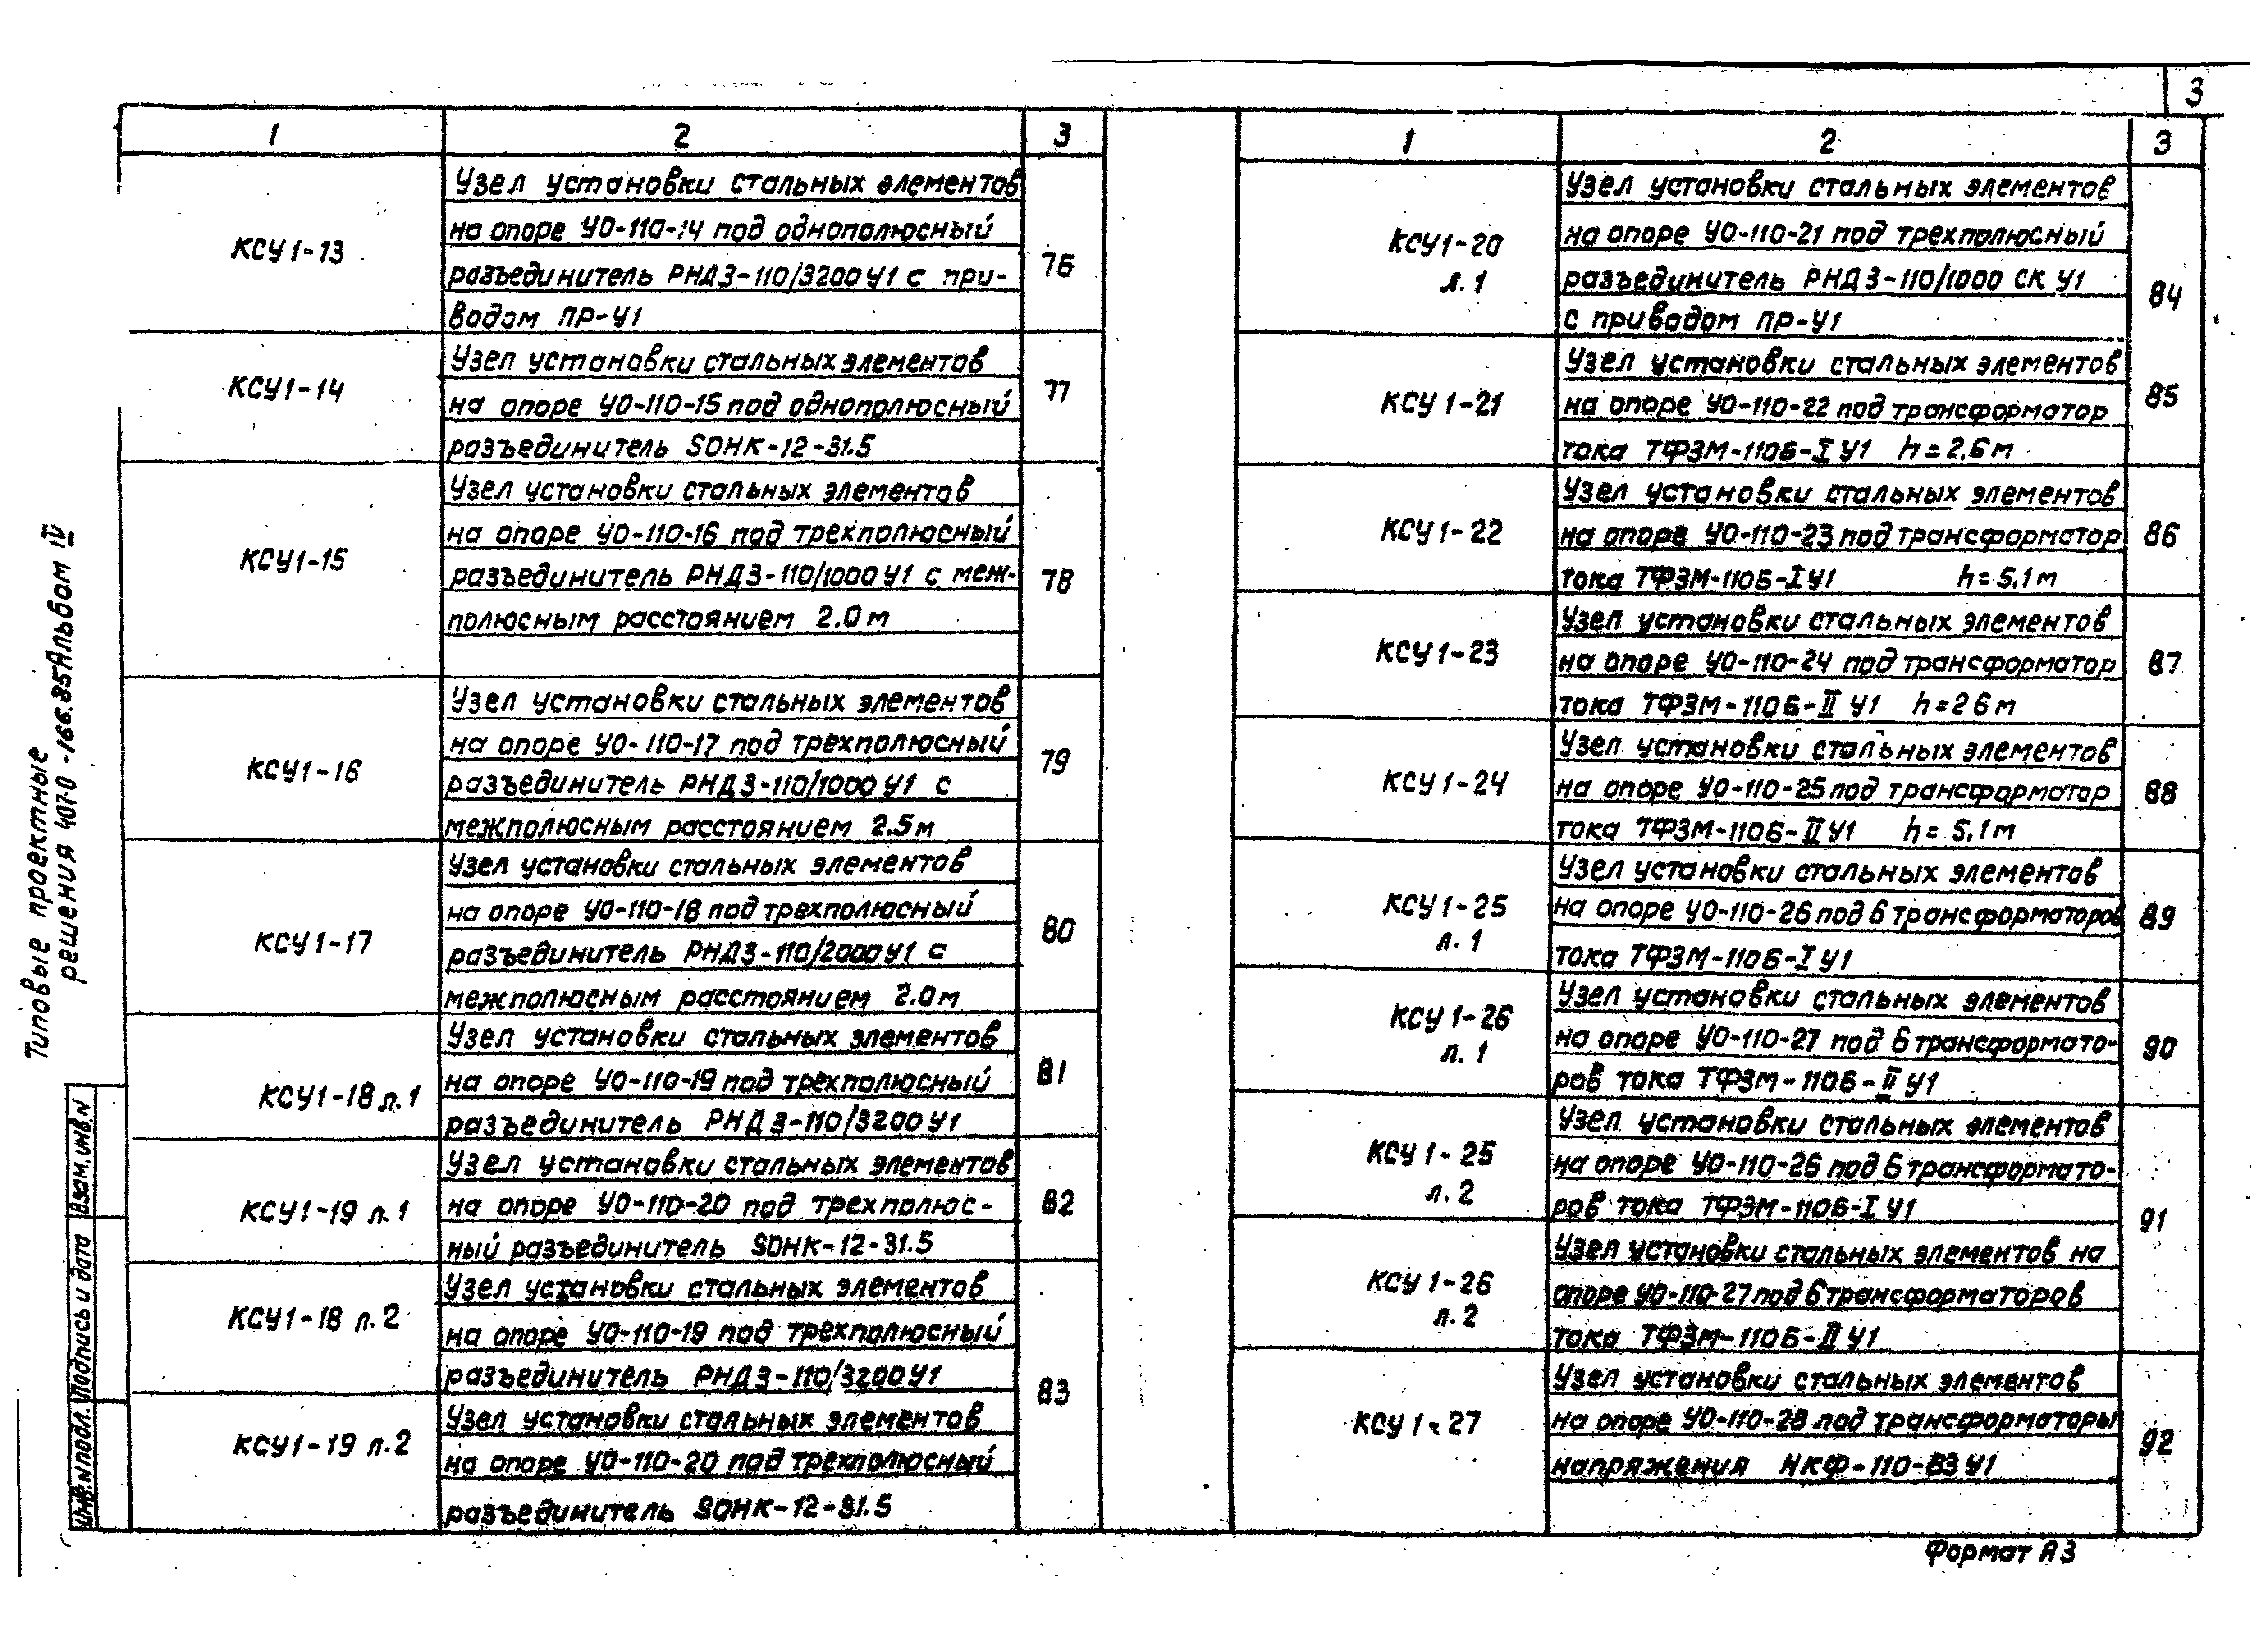 3
1 2 3
КСУ1-13
Узел установки стальных элементов
на опоре УО-110-14 под однополюсный
разъединитель РНДЗ-110/3200 У1 с при-
водом ПР-У1
76
КСУ1-14
Узел установки стальных элементов
на опоре УО-110-15 под однополюсный
разъединитель SOHK-12-31.5
77
КСУ1-15
Узел установки стальных элементов
на опоре УО-110-16 под трехполюсный
разъединитель РНДЗ-110/1000 У1 с меж-
полюсным расстоянием 2.0 м
78
КСУ1-16
Узел установки стальных элементов
на опоре УО-110-17 под трехполюсный
разъединитель РНДЗ-110/1000 У1 с
межполюсным расстоянием 2.5 м
79
КСУ1-17
Узел установки стальных элементов
на опоре УО-110-18 под трехполюсный
разъединитель РНДЗ-110/2000 У1 с
межполюсным расстоянием 2.0 м
80
КСУ1-18 л.1
Узел установки стальных элементов
на опоре УО-110-19 под трехполюсный
разъединитель РНДЗ-110/3200 У1
81
КСУ1-19 л.1
Узел установки стальных элементов
на опоре УО-110-20 под трехполюс-
ный разъединитель SOHK-12-31.5
82
КСУ1-18 л.2
Узел установки стальных элементов
на опоре УО-110-19 под трехполюсный
разъединитель РНДЗ-110/3200 У1
83
КСУ1-19 л.2
Узел установки стальных элементов
на опоре УО-110-20 под трехполюсный
разъединитель SOHK-12-31.5
1 2 3
КСУ1-20
л.1
Узел установки стальных элементов
на опоре УО-110-21 под трехполюсный
разъединитель РНДЗ-110/1000 СК У1
с приводом ПР-У1
84
КСУ1-21
Узел установки стальных элементов
на опоре УО-110-22 под трансформатор
тока ТФЗМ-110Б-I У1 h=2.6 м
85
КСУ1-22
Узел установки стальных элементов
на опоре УО-110-23 под трансформатор
тока ТФЗМ-110Б-I У1 h=5.1 м
86
КСУ1-23
Узел установки стальных элементов
на опоре УО-110-24 под трансформатор
тока ТФЗМ-110Б-II У1 h=2 6 м
87
КСУ1-24
Узел установки стальных элементов
на опоре УО-110-25 под трансформатор
тока ТФЗМ-110Б-II У1 h=5.1 м
88
КСУ1-25
л.1
Узел установки стальных элементов
на опоре УО-110-26 под 6 трансформаторов
тока ТФЗМ-110Б-I У1
89
КСУ1-26
л.1
Узел установки стальных элементов
на опоре УО-110-27 под 6 трансформато-
ров тока ТФЗМ-110Б-II У1
90
КСУ1-25
л.2
Узел установки стальных элементов
на опоре УО-110-26 под 6 трансформато-
ров тока ТФЗМ-110Б-I У1
91
КСУ1-26
л.2
Узел установки стальных элементов на
опоре УО-110-27 под 6 трансформаторов
тока ТФЗМ-110Б-II У1
КСУ1-27
Узел установки стальных элементов
на опоре УО-110-28 под трансформаторы
напряжения НКФ-110-83 У1
92
Типовые проектные
решения 407-0-166.85 Альбом IV
Взам.инв.N
Подпись и дата
Инв.N подл.
Формат А3